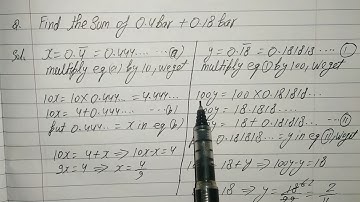 Q. Find the Sum of 0.4 bar + 0.18 bar
Sol. x = 0.4̅ = 0.444.... (a)
multiply eq (a) by 10, we get
10x = 10 × 0.444... = 4.444...
10x = 4 + 0.444...
put 0.444... = x in eq (b)
10x = 4 + x ⇒ 10x - x = 4
9x = 4 ⇒ x = 4/9
y = 0.1̅8̅ = 0.181818 ....
multiply eq by 100, we get
100y = 100 × 0.181818...
y = 18.1818...
y = 18 + 0.1818...
0.181818... = y in eq
18 + y ⇒ 100y - y = 18
18 ⇒ y =